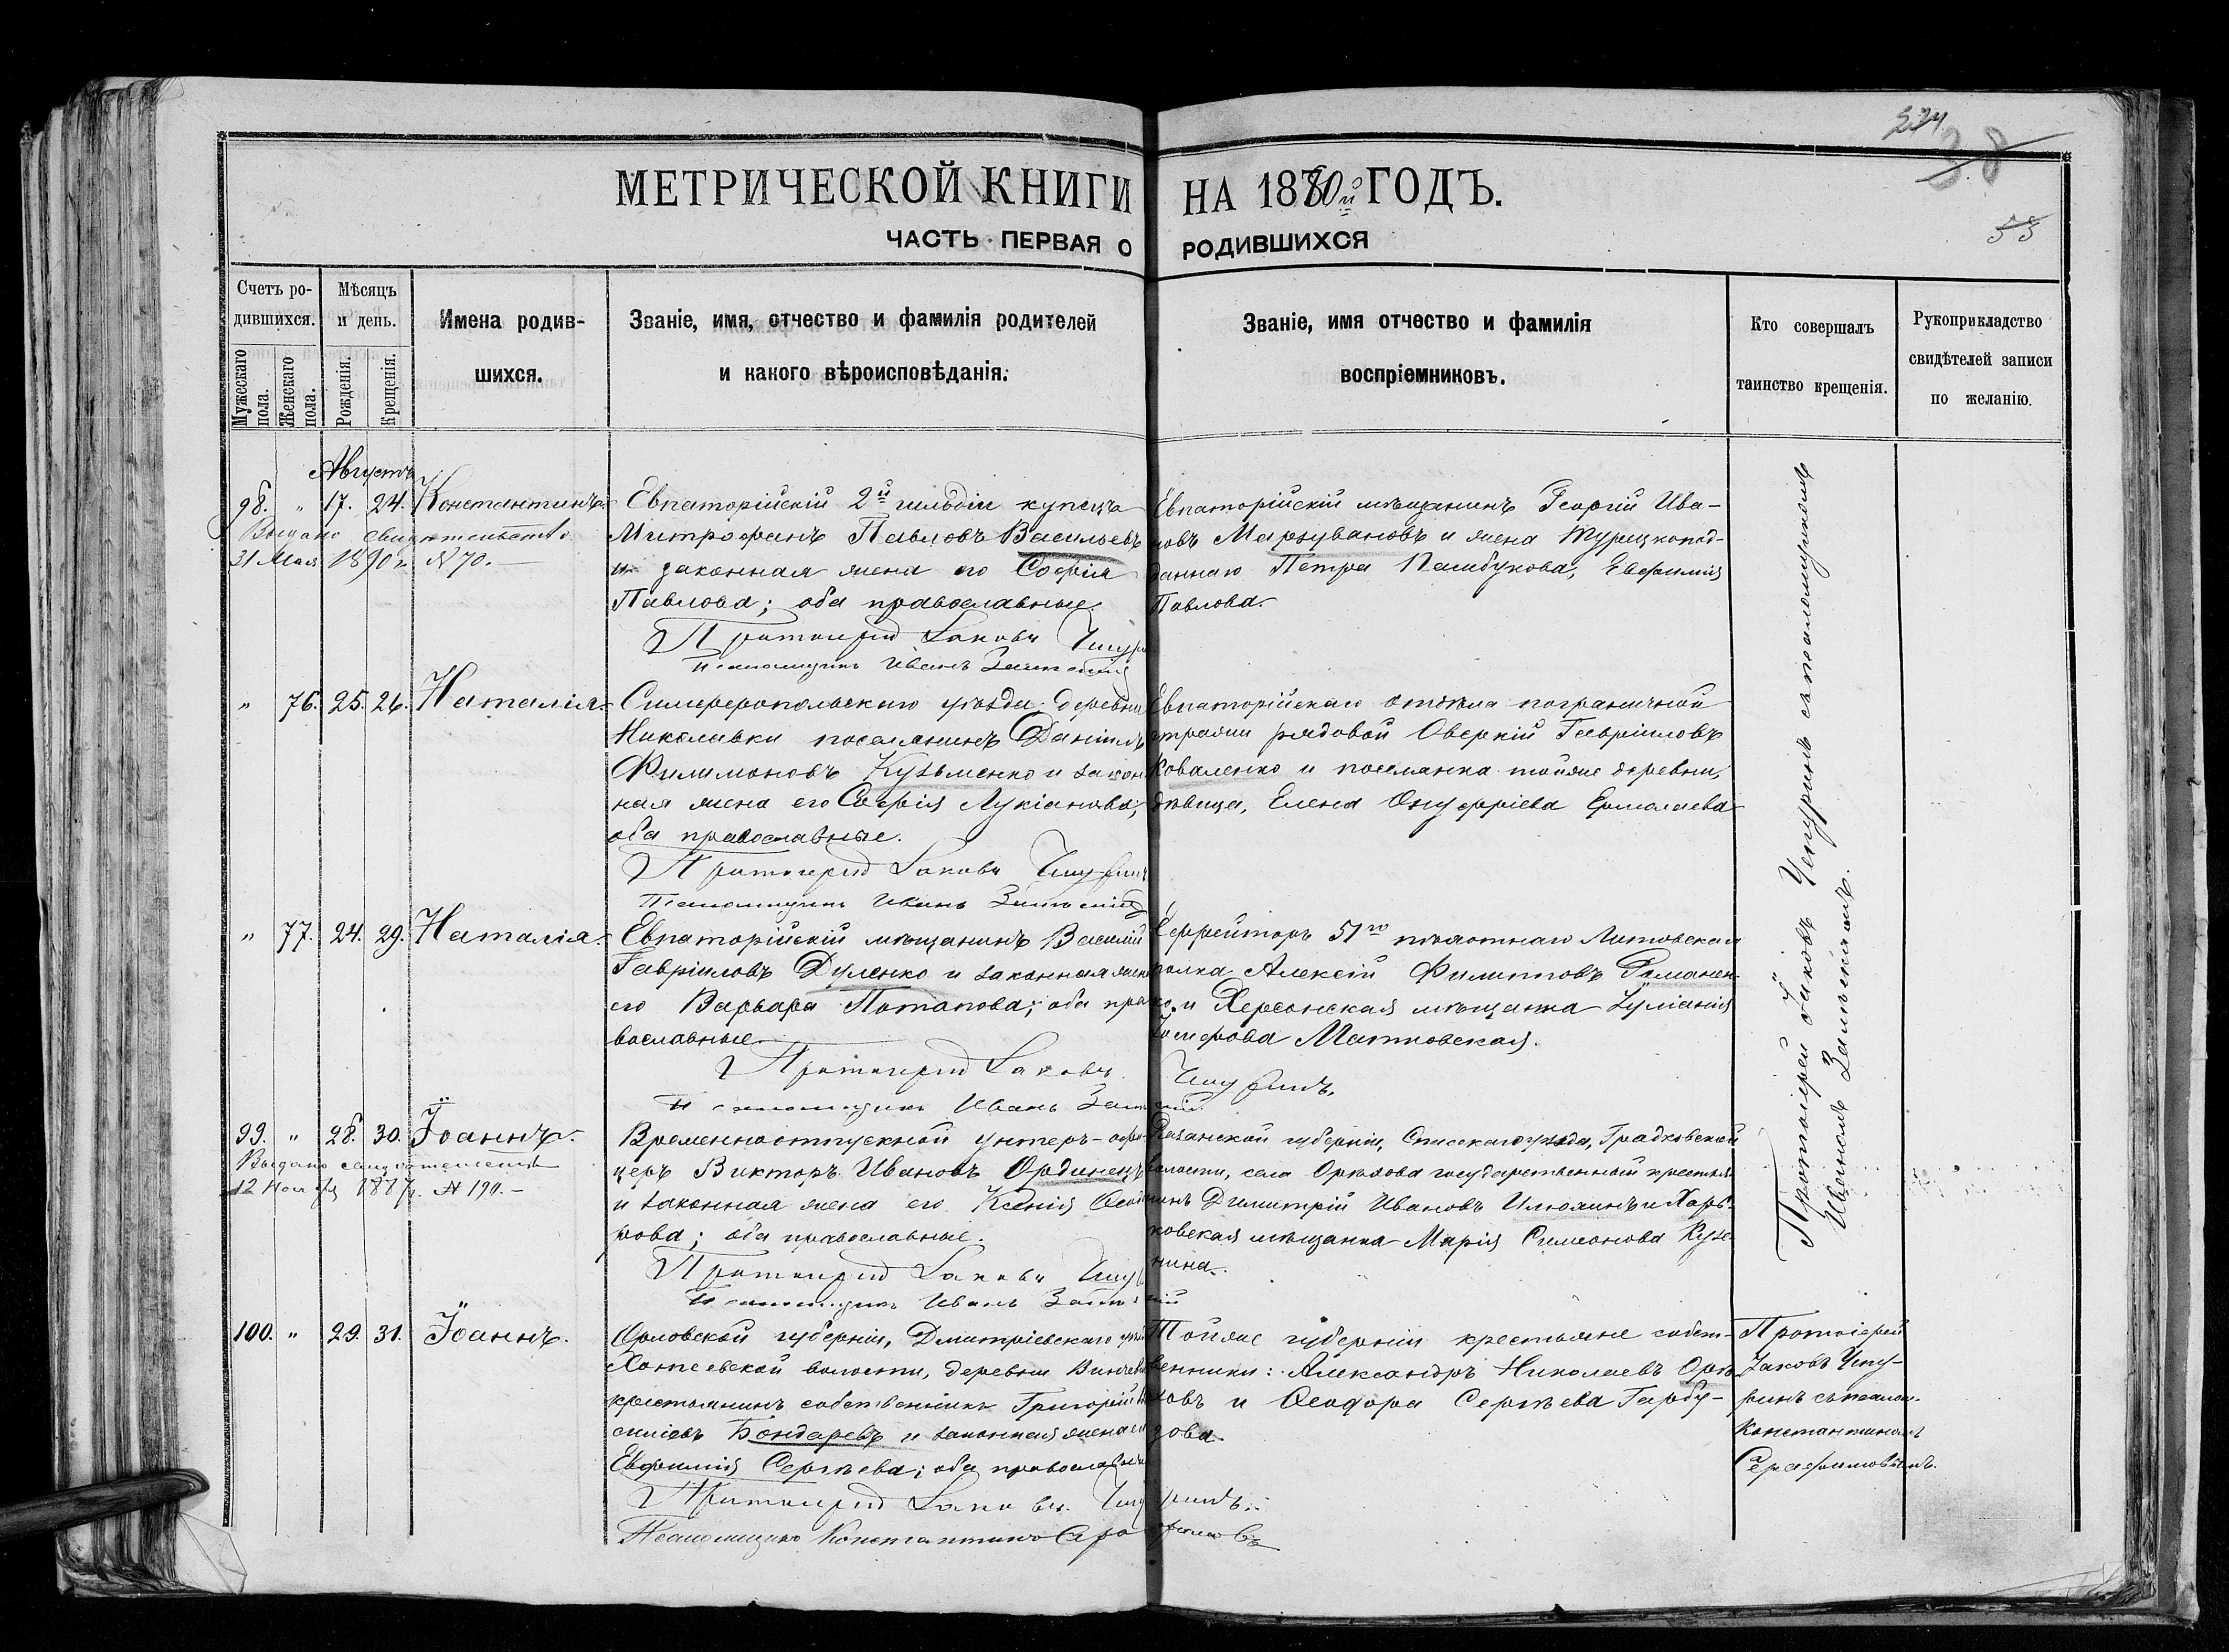 234.
38
55
МЕТРИЧЕСКОЙ КНИГИ НА 1880й ГОДЪ.
ЧАСТЬ ПЕРВАЯ О РОДИВШИХСЯ
Счетъ ро-
дившихся.
Мужескаго
пола.
Женскаго
пола.
Мѣсяцъ
и день.
Рожденія.
Крещенія.
Имена родив-
шихся.
Званіе, имя, отчество и фамилія родителей
и какого вѣроисповѣданія.
Званіе, имя отчество и фамилія
воспріемниковъ.
Кто совершалъ
таинство крещенія.
Рукоприкладство
свидѣтелей записи
по желанію.
Августъ
98. " 17. 24. Константинъ.
Выдано свидѣтельство
31 Мая 1890 г. N 70.
Евпаторійскій 2й гильдіи купецъ
Митрофанъ Павловъ Васильевъ
и законная жена его Софія
Павлова; оба православные.
Протоіерей Іаковъ
Псаломщикъ Иванъ
Евпаторійскій мѣщанинъ Георгій Ива-
новъ Марзувановъ и жена турецкопод-
даннаго Петра Памбукова, Евфимія
Павлова.
" 76. 25. 26. Наталія.
Симферопольскаго уѣзда, деревни
Николаевки поселянинъ Даніилъ
Филимоновъ Кузьменко и закон-
ная жена его Софія Лукіанова,
оба православные.
Протоіерей Іаковъ Чепуринъ
Псаломщикъ Иванъ
Евпаторійскаго отдѣла пограничной
стражи рядовой Оверкій Гавріиловъ
Коваленко и поселянка тойже деревни,
дѣвица, Елена Онуфріева Ермолаева
" 77. 24. 29. Наталія.
Евпаторійскій мѣщанинъ Василій
Гавріиловъ Дуленко и законная жена
его Варвара Потапова; оба пра-
вославные.
Протоіерей Іаковъ Чепуринъ.
Псаломщикъ Иванъ
Ефрейторъ 51го пѣхотнаго Литовскаго
полка Алексій Филипповъ Романен-
ко и Херсонская мѣщанка Іуліанія
Іосифова Матковская.
99. " 28. 30. Іоаннъ.
Выдано свидѣтельство
12 Ноября 1887 г. N 190.
Временноотпускной унтеръ-офи-
церъ Викторъ Ивановъ Ординецъ
и законная жена его Ксенія Ѳеодо-
рова; оба православные.
Протоіерей Іаковъ
Псаломщикъ Иванъ
Рязанской губерніи, Спасскаго уѣзда, Градковской
волости, села Орѣхова государственный крестья-
нинъ Димитрій Ивановъ Илюхинъ и Харь-
ковская мѣщанка Марія Симеонова Кузе-
нина.
100. " 29. 31. Іоаннъ.
Орловской губерніи, Дмитріевскаго уѣзда
волости, деревни
крестьянинъ собственникъ Григорій
Бондаревъ и законная жена его
Евфимія Сергѣева; оба православные
Протоіерей Іаковъ Чепуринъ.
Псаломщикъ Константинъ Серафимовъ
Тойже губерніи крестьяне собст-
венники: Александръ Николаевъ Орѣ-
ховъ и Ѳеодора Сергѣева Гарбу-
зова.
Протоіерей Іаковъ Чепуринъ съ псаломщикомъ
Иваномъ
Протоіерей
Іаковъ Чепу-
ринъ съ псалом.
Константиномъ
Серафимовымъ.